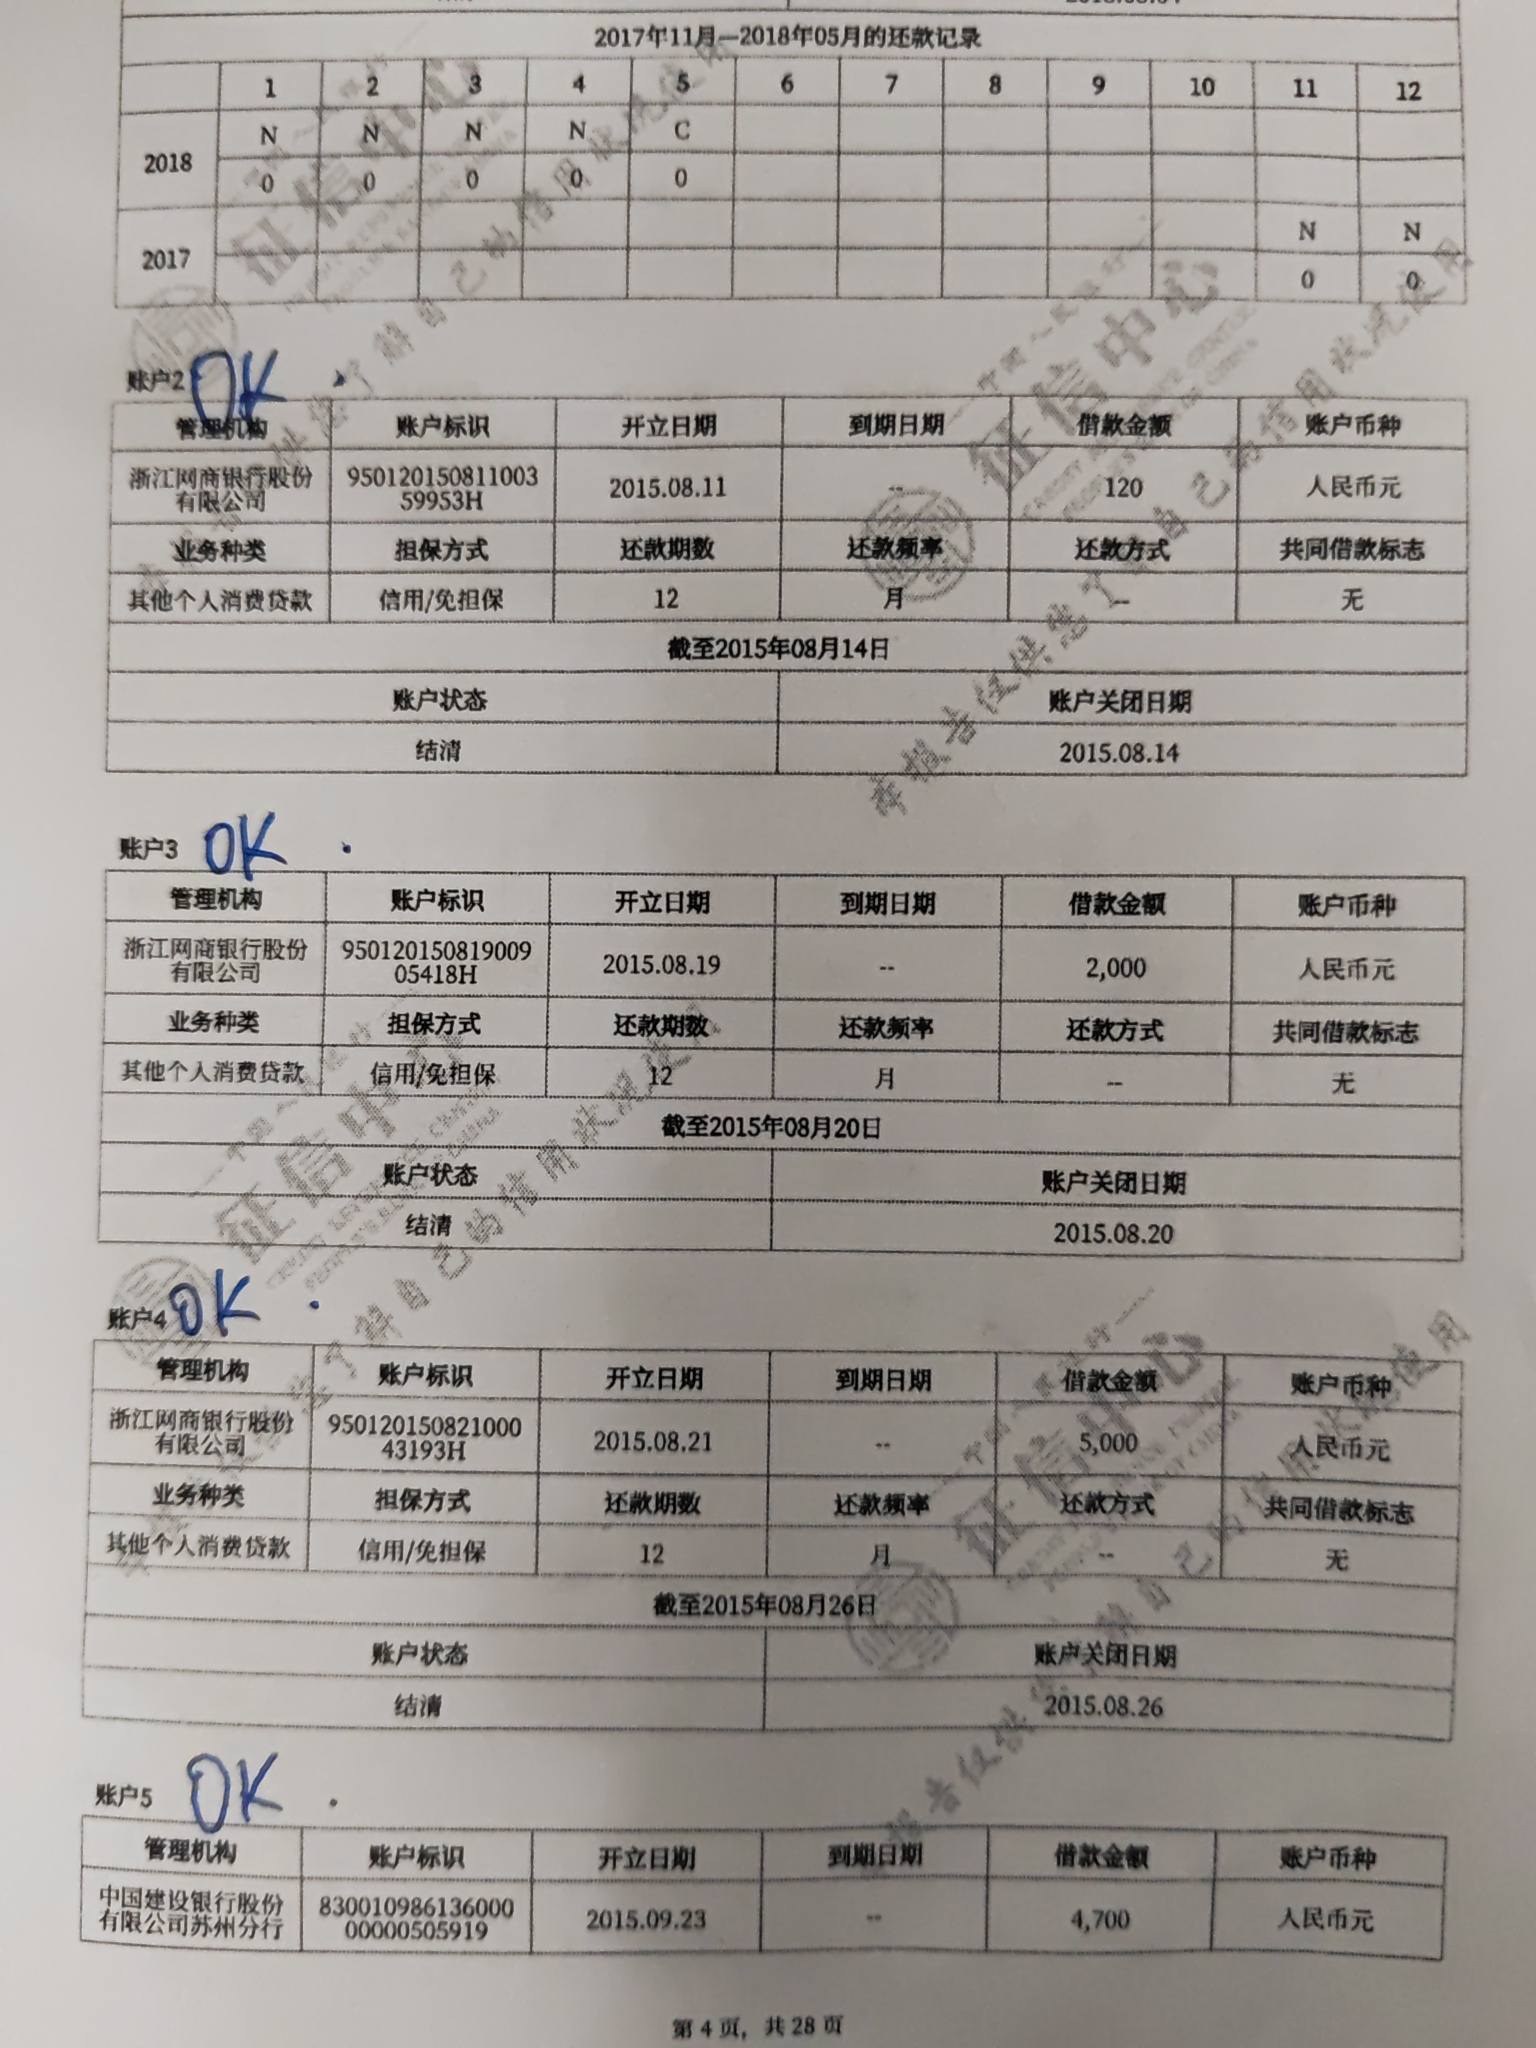 2017年11月—2018年05月的还款记录
1 2 3 4 5 6 7 8 9 10 11 12
2018 N N N N C
0 0 0 0 0
2017 N N
0 0
账户2 OK
管理机构 账户标识 开立日期 到期日期 借款金额 账户币种
浙江网商银行股份 950120150811003 2015.08.11 -- 120 人民币元
有限公司 59953H
业务种类 担保方式 还款期数 还款频率 还款方式 共同借款标志
其他个人消费贷款 信用/免担保 12 月 -- 无
截至2015年08月14日
账户状态 账户关闭日期
结清 2015.08.14
账户3 OK
管理机构 账户标识 开立日期 到期日期 借款金额 账户币种
浙江网商银行股份 950120150819009 2015.08.19 -- 2,000 人民币元
有限公司 05418H
业务种类 担保方式 还款期数 还款频率 还款方式 共同借款标志
其他个人消费贷款 信用/免担保 12 月 -- 无
截至2015年08月20日
账户状态 账户关闭日期
结清 2015.08.20
账户4 OK
管理机构 账户标识 开立日期 到期日期 借款金额 账户币种
浙江网商银行股份 950120150821000 2015.08.21 -- 5,000 人民币元
有限公司 43193H
业务种类 担保方式 还款期数 还款频率 还款方式 共同借款标志
其他个人消费贷款 信用/免担保 12 月 -- 无
截至2015年08月26日
账户状态 账户关闭日期
结清 2015.08.26
账户5 OK
管理机构 账户标识 开立日期 到期日期 借款金额 账户币种
中国建设银行股份 830010986136000 2015.09.23 -- 4,700 人民币元
有限公司苏州分行 00000505919
第 4 页，共 28 页
征信中心
本报告仅供您了解自己的信用状况使用